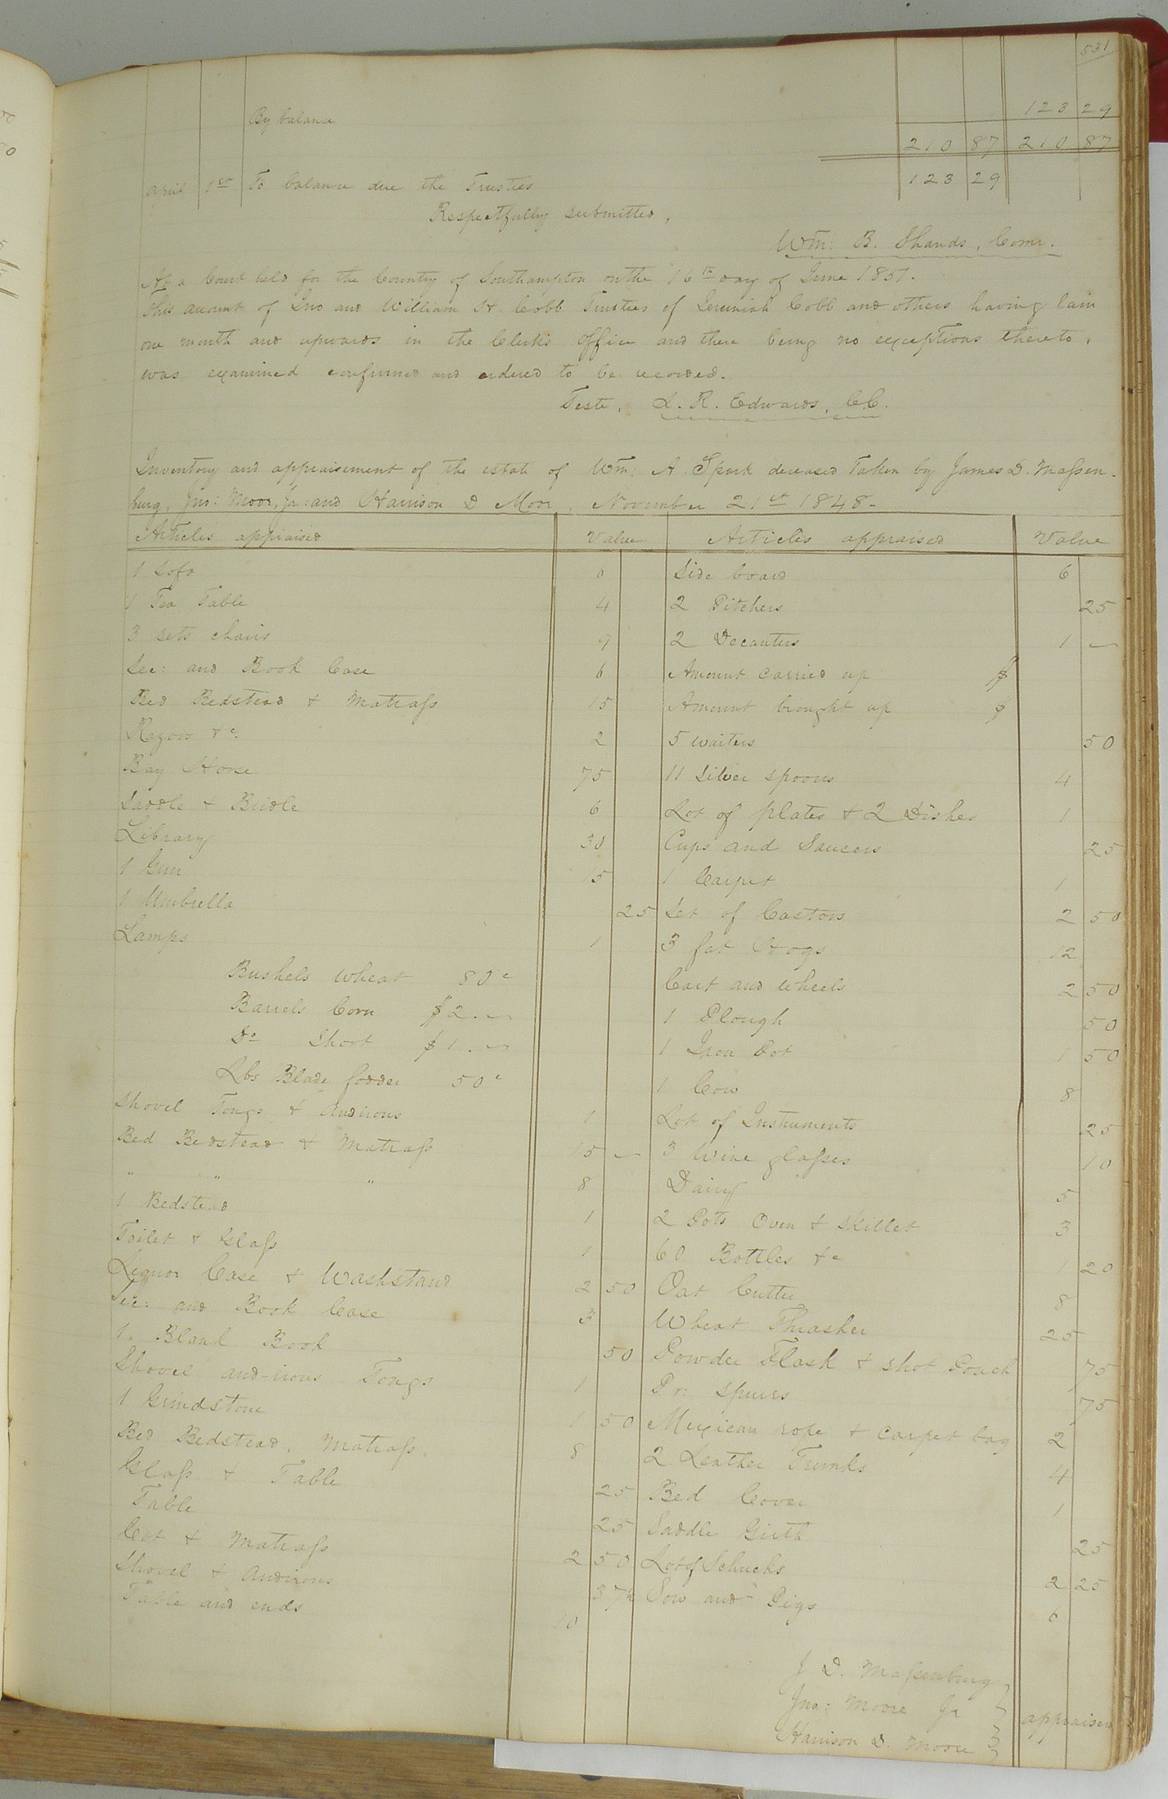 531
By balance 123 29
210 87 210 87
April 1st To balance due the Trustees 123 29
Respectfully submitted,
Wm: B. Shands, Comr.
At a Court held for the County of Southampton on the 16th day of June 1851.
This account of Jno and William H. Cobb Trustees of Jeremiah Cobb and others having lain
one month and upwards in the Clerk's office and there being no exceptions thereto,
was examined confirmed and ordered to be recorded.
Teste, L. R. Edwards, CC.
Inventory and appraisement of the estate of Wm: A Spark deceased taken by James D. Massen-
burg, Jno: Moor, Jr: and Harrison D Moor, November 21st 1848-
Articles appraised Value Articles appraised Value
1 Sofa
1 Tea Table 4
3 sets chairs 9
Sec: and Book Case 6
Bed Bedstead & Matrass 15
Razors &c. 2
Bay Horse 75
Saddle & Bridle 6
Library 30
1 Gun 15
1 Umbrella 25
Lamps 1
Bushels Wheat 80c
Barrels Corn $2.—
Do Short $1.—
Lbs Blade fodder 50c
Shovel Tongs & Andirons 1
Bed Bedstead & Matrass 15 —
" " " 8
1 Bedstead 1
Toilet & Glass 1
Liquor Case & Washstand 2 50
Sec: and Book Case 3
1. Blank Book 50
Shovel and-irons Tongs 1
1 Grindstone 1 50
Bed Bedstead, Matrass. 8
Glass & Table 25
Table 25
Cot & Matrass 2 50
Shovel & Andirons 37½
Table and ends 10
Side board 6
2 Pitchers 25
2 Decanters 1 —
Amount carried up $
Amount brought up $
5 waiters 50
11 Silver spoons 4
Lot of plates & 2 Dishes 1
Cups and Saucers 25
1 Carpet 1
Set of Castors 2 50
3 fat Hogs 12
Cart and wheels 2 50
1 Plough 50
1 Iron Pot 1 50
1 Cow 8
Lot of Instruments 25
3 Wine glasses 10
Dairy 5
2 Pots Oven & Skillet 3
60 Bottles &c 1 20
Oat Cutter 8
Wheat Thrasher 25
Powder Flask & Shot Pouch 75
Pr: Spurs 75
Mexican rope & carpet bag 2
2 Leather Trunks 4
Bed Cover 1
Saddle Girth 25
Lot of Schucks 2 25
Sow and Pigs 6
J D. Massenburg
Jno: Moore Jr appraisers
Harrison D. Moore